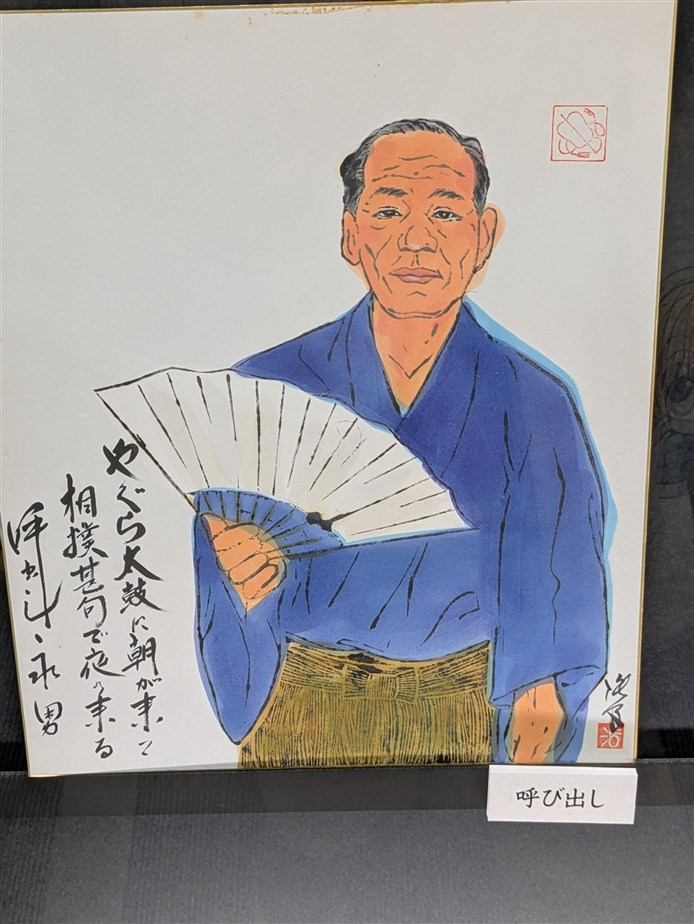 やぐら太鼓に朝が来て
相撲甚句で夜が来る
呼出し 永男
呼び出し